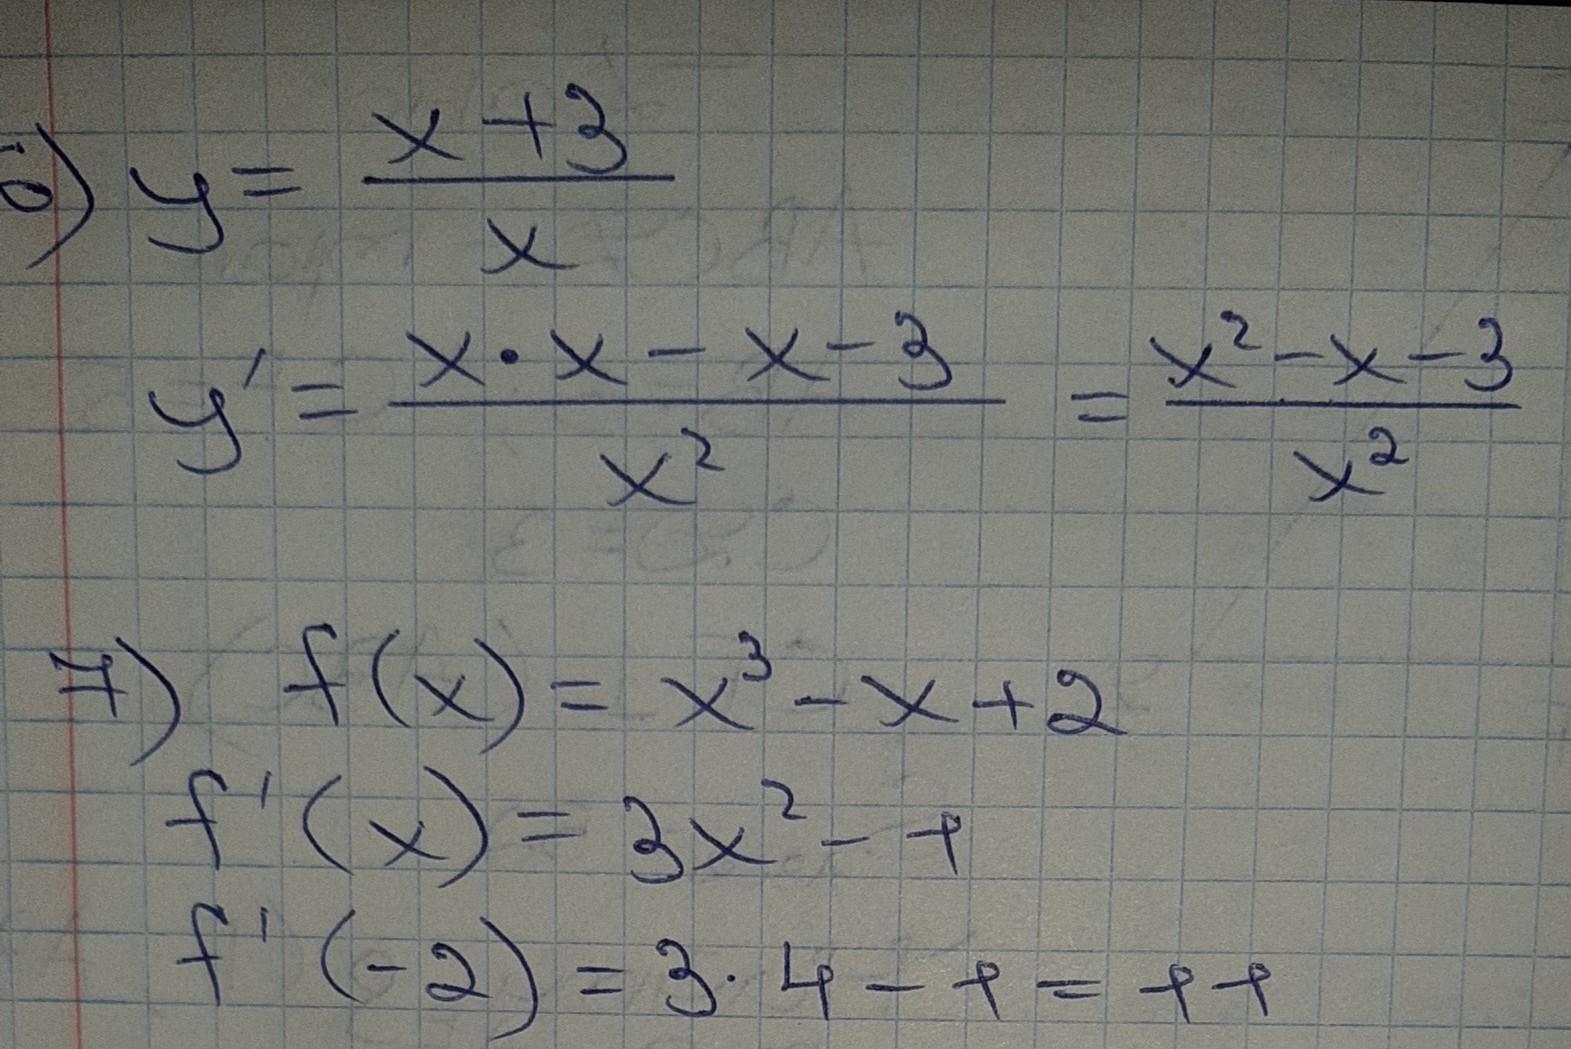 6) y = (x+3)/x
y' = (x·x - x - 3)/x² = (x² - x - 3)/x²
7) f(x) = x³ - x + 2
f'(x) = 3x² - 1
f'(-2) = 3·4 - 1 = 11